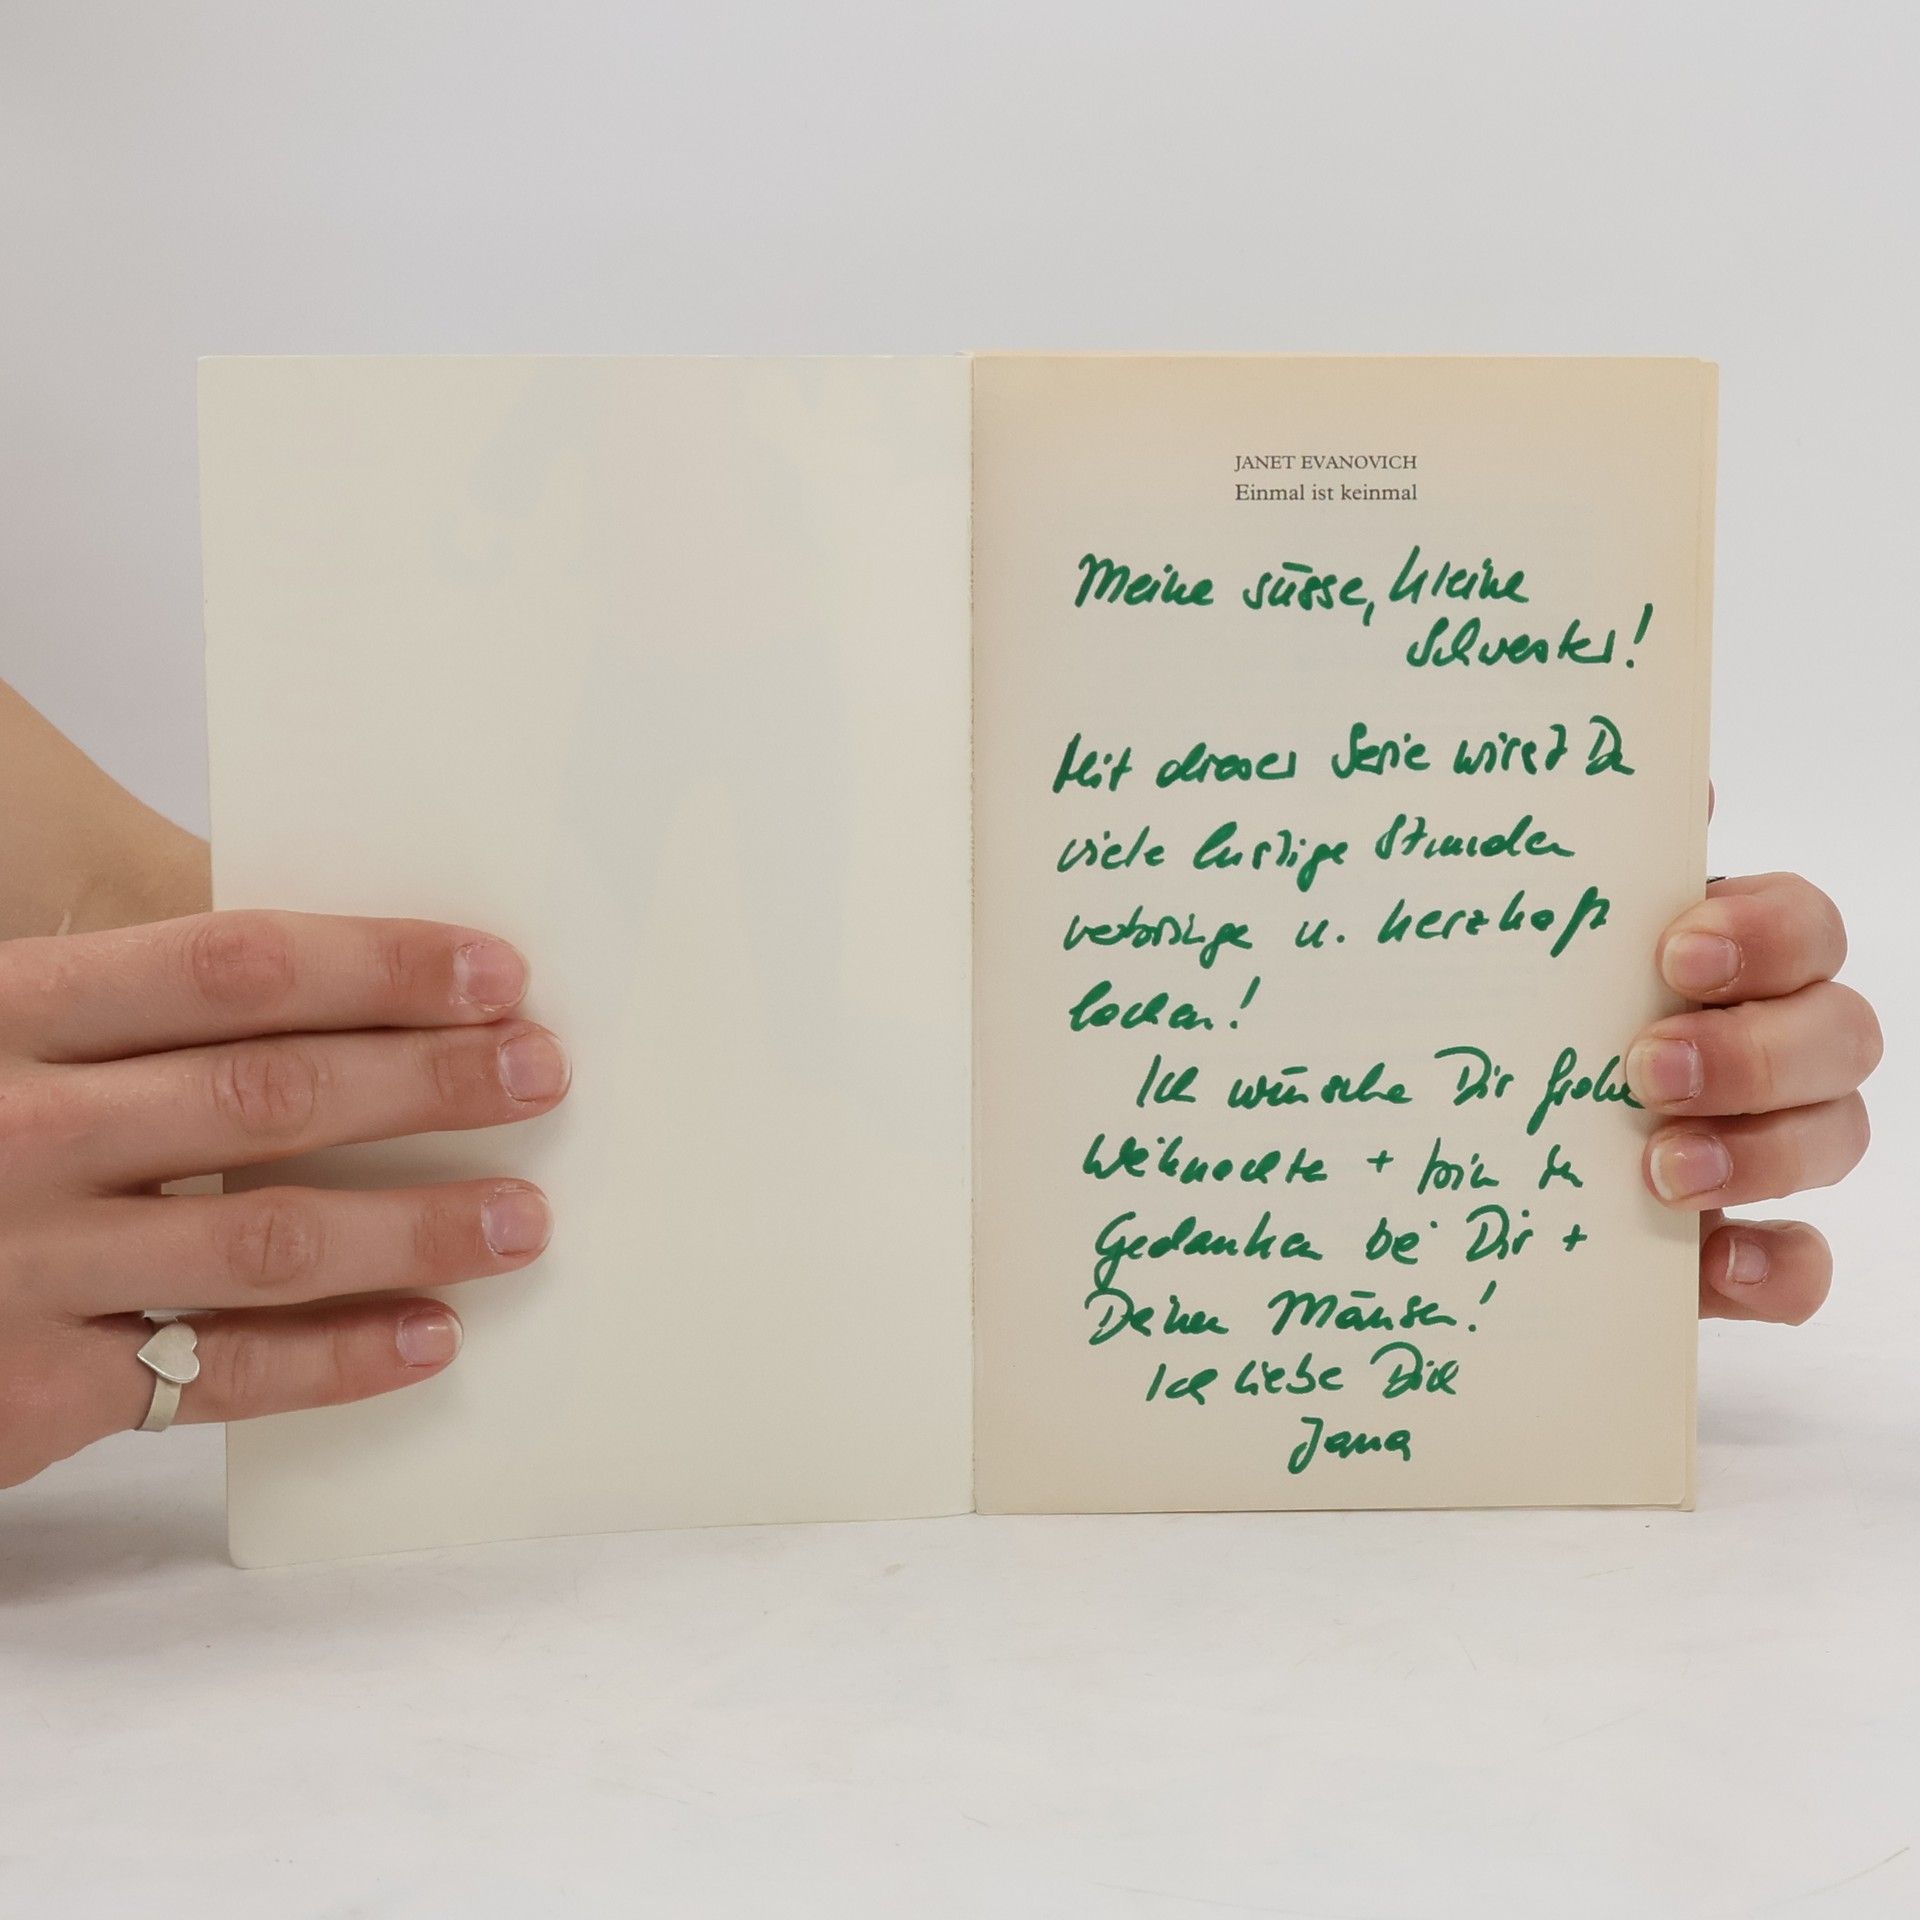 JANET EVANOVICH
Einmal ist keinmal
Meine süsse, kleine
Schwester!
Mit dieser Serie wirst Du
viele lustige Stunden
verbringe u. herzhaft
lachen!
Ich wünsche Dir frohe
Weihnachten + bin in
Gedanken bei Dir +
Deinen Mäusen!
Ich liebe Dich
Jana